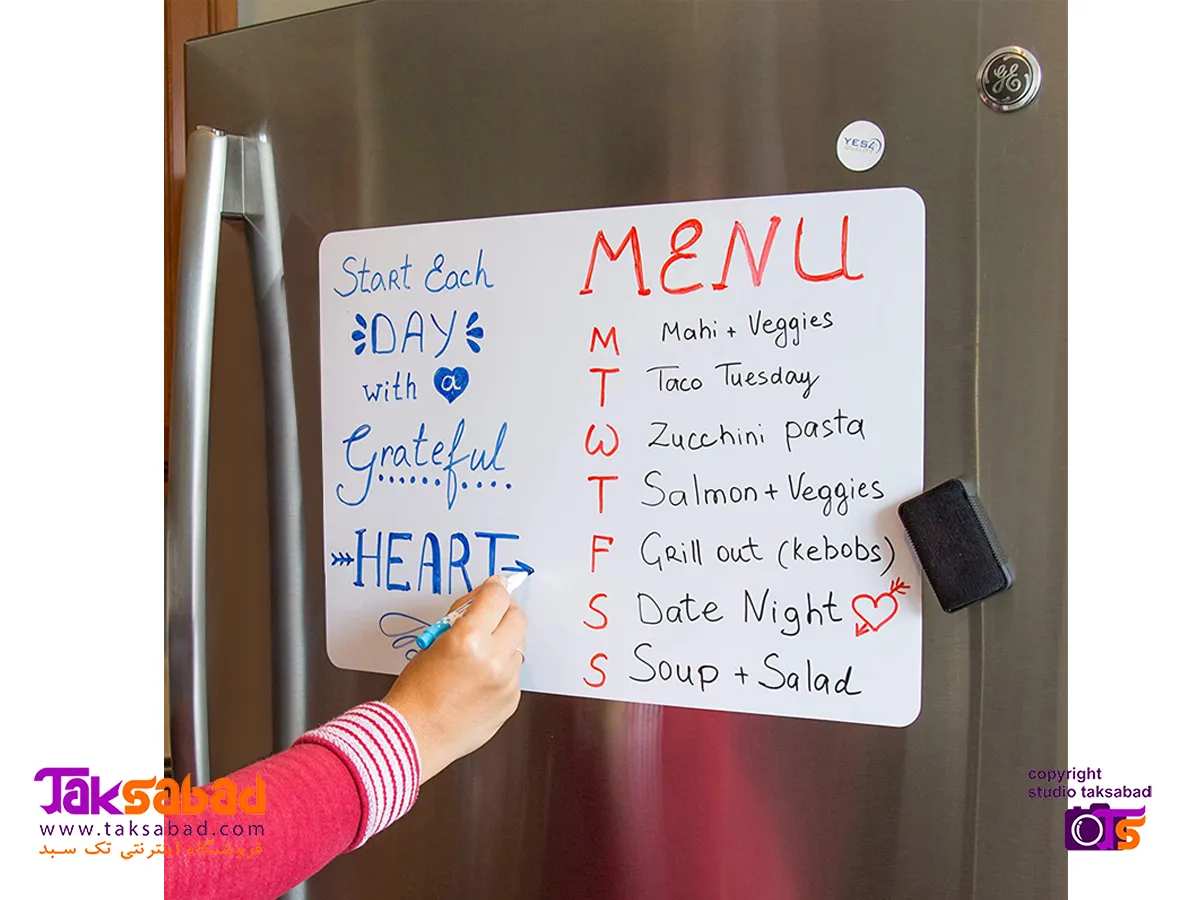 GE
YES4
QUALITY
Start Each
DAY
with a
Grateful
HEART
MENU
M Mahi + Veggies
T Taco Tuesday
W Zucchini pasta
T Salmon + Veggies
F Grill out (kebobs)
S Date Night
S Soup + Salad
Taksabad
www.taksabad.com
فروشگاه اینترنتی تک سبد
copyright
studio taksabad
TS